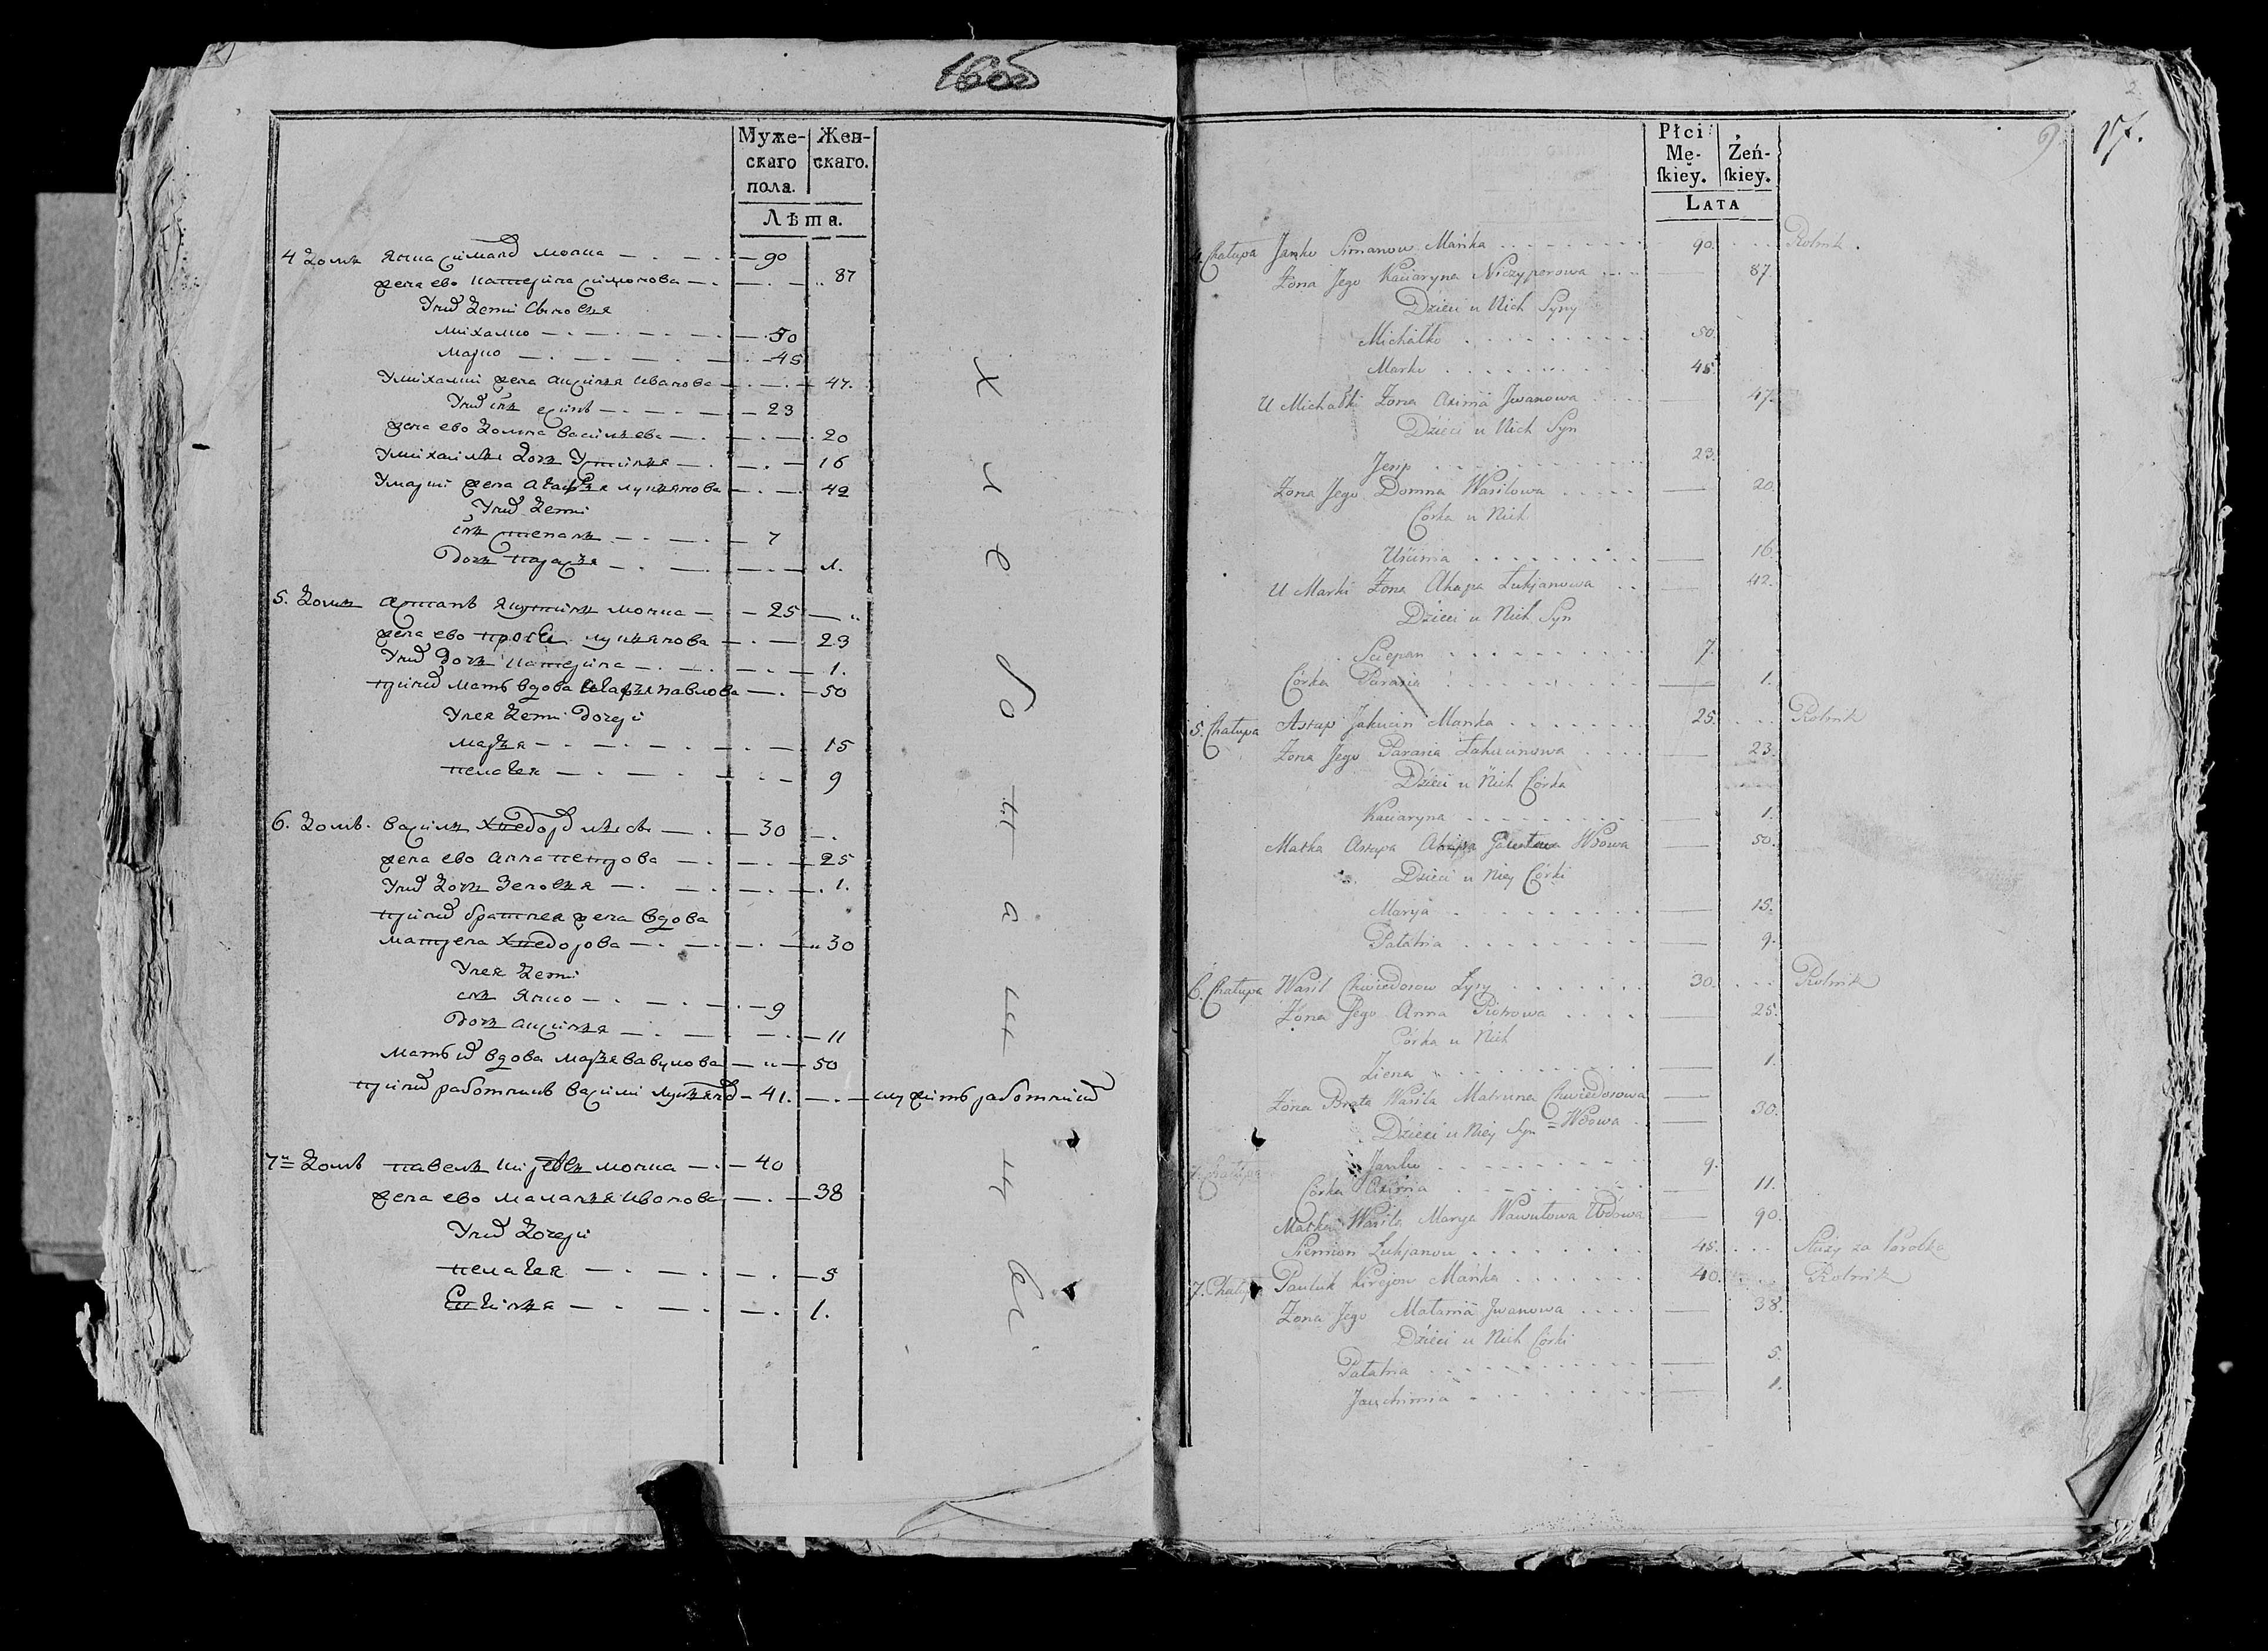 160б
Муже-
скаго
пола.
Жен-
скаго.
Лѣта.
4 Домъ Янка Симанов — 90
жена ево Катерина — 87
У них дети Сыновья
Михалко — 50
Марко — 45
У Михалки жена Аксинья Иванова — 47.
У них сынъ — 23
жена ево Домна Васильева — 20
У Михалки дочь Устинья — 16
У Марки жена Агафья Лукьянова — 42
У них дети
Степанъ — 7
дочь Парася — 1.
5. Домъ — 25
жена ево Лукьянова — 23
У них дочь Катерина — 1.
при них мать вдова Агафья Павлова — 50
У нея дети дочери
Марья — 15
Пелагея — 9
6. Домъ. Василь Хведоров — 30
жена ево Анна Петрова — 25
У них дочь Зеновья — 1.
при них братнея жена вдова
Матрена Хведорова — 30
У нея дети
Янко — 9
дочь Аксинья — 11
Мать их вдова Марья Вавулова — 50
при них работник — 41. — служитъ работником
7й Домъ Павелъ — 40
жена ево Маланья Иванова — 38
У них дочери
Пелагея — 5
1.
Хлеботашцы
Płci
Mę-
ſkiey.
Żeń-
ſkiey.
LATA
17.
4. Chałupa Janko Simanow Mańka 90. Rolnik.
Żona Jego Kaciaryna Niczyporowa 87.
Dzieci u Nich Syny
Michałko 50.
Marko 45
U Michałki Żona Axinia Jwanowa 47.
Dzieci u Nich Syn
Jesip 23.
Żona Jego Domna Wasilowa 20.
Córka u Nich
Uścinia 16.
U Marki Żona Ahapa Łukjanowa 42.
Dzieci u Nich Syn
Sciepan 7
Córka Parasia 1.
5. Chałupa Astap Jakucin Mańka 25. Rolnik
Żona Jego Parasia 23.
Dzieci u Nich Córka
Kaciaryna 1.
Matka Astapa Ahapa Wdowa 50.
Dzieci u Niey Córki
Marya 15.
Pałahia 9.
6. Chałupa Wasil Chwiedorow Łysy 30. Rolnik
Żona Jego Anna Piotrowa 25.
Córka u Nich
Ziena 1.
Żona Brata Wasila Matruna Chwiedorowa
Wdowa 30.
Dzieci u Niey Syn
Janko 9.
Córka Axinia 11.
Matka Wasila Marya Wawułowa Wdowa 90.
Siemion Łukjanow 45. Służy za Parobka
7. Chałupa Pauluk Kirejow Mańka 40. Rolnik
Żona Jego Małania Jwanowa 38.
Dzieci u Nich Córki
Pałahia 5.
Jauchimia 1.